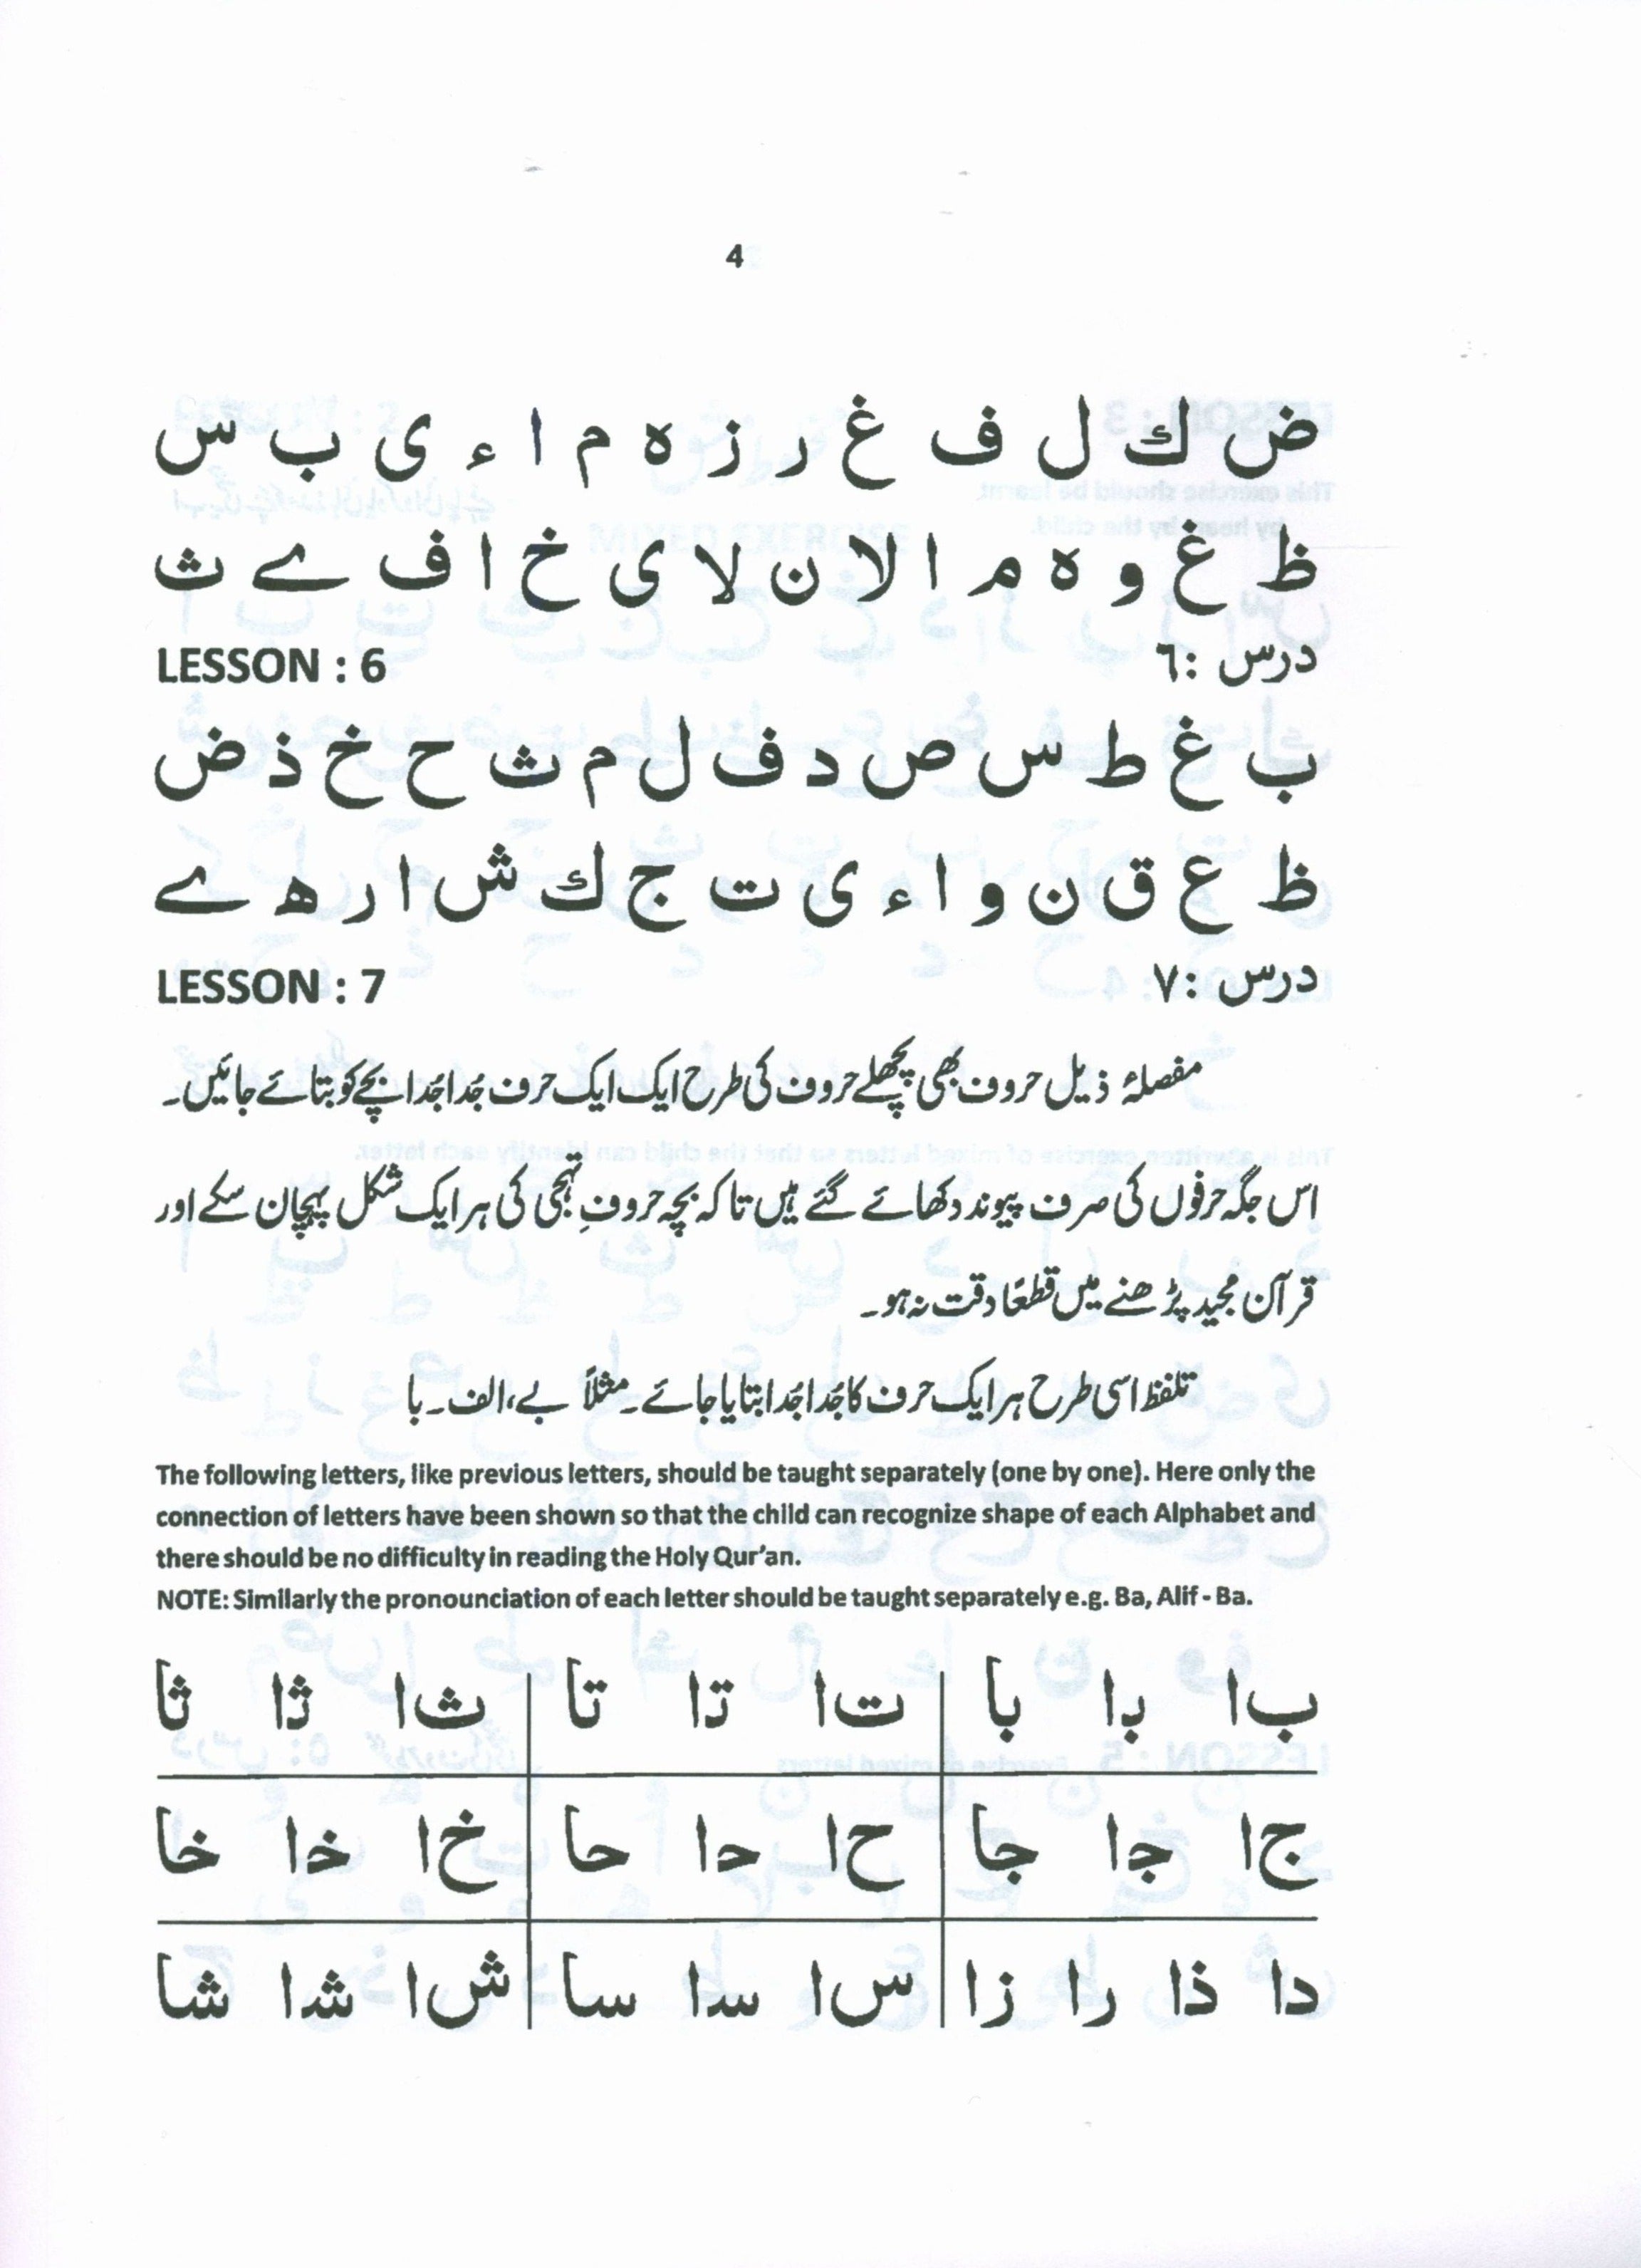 4
ض ك ل ف غ ر ز ه م ا ء ى ب س
ظ غ و ه م ا لا ن لا ى خ ا ف ے ث
LESSON : 6 درس :٦
ب غ ط س ص د ف ل م ث ح خ ذ ض
ظ ع ق ن و ا ء ى ت ج ك ش ا ر ھ ے
LESSON : 7 درس :٧
مفصلۂ ذیل حروف بھی پچھلے حروف کی طرح ایک ایک حرف جُدا جُدا بچے کو بتائے جائیں۔
اس جگہ حرفوں کی صرف پیوند دکھائے گئے ہیں تاکہ بچہ حروفِ تہجی کی ہر ایک شکل پہچان سکے اور
قرآن مجید پڑھنے میں قطعًا دقت نہ ہو۔
تلفظ اسی طرح ہر ایک حرف کا جُدا جُدا بتایا جائے۔ مثلاً بے، الف۔ با
The following letters, like previous letters, should be taught separately (one by one). Here only the
connection of letters have been shown so that the child can recognize shape of each Alphabet and
there should be no difficulty in reading the Holy Qur'an.
NOTE: Similarly the pronounciation of each letter should be taught separately e.g. Ba, Alif - Ba.
ب‌ا بـا با ت‌ا تـا تا ث‌ا ثـا ثا
ج‌ا جـا جا ح‌ا حـا حا خ‌ا خـا خا
دا ذا را زا س‌ا سـا سا ش‌ا شـا شا